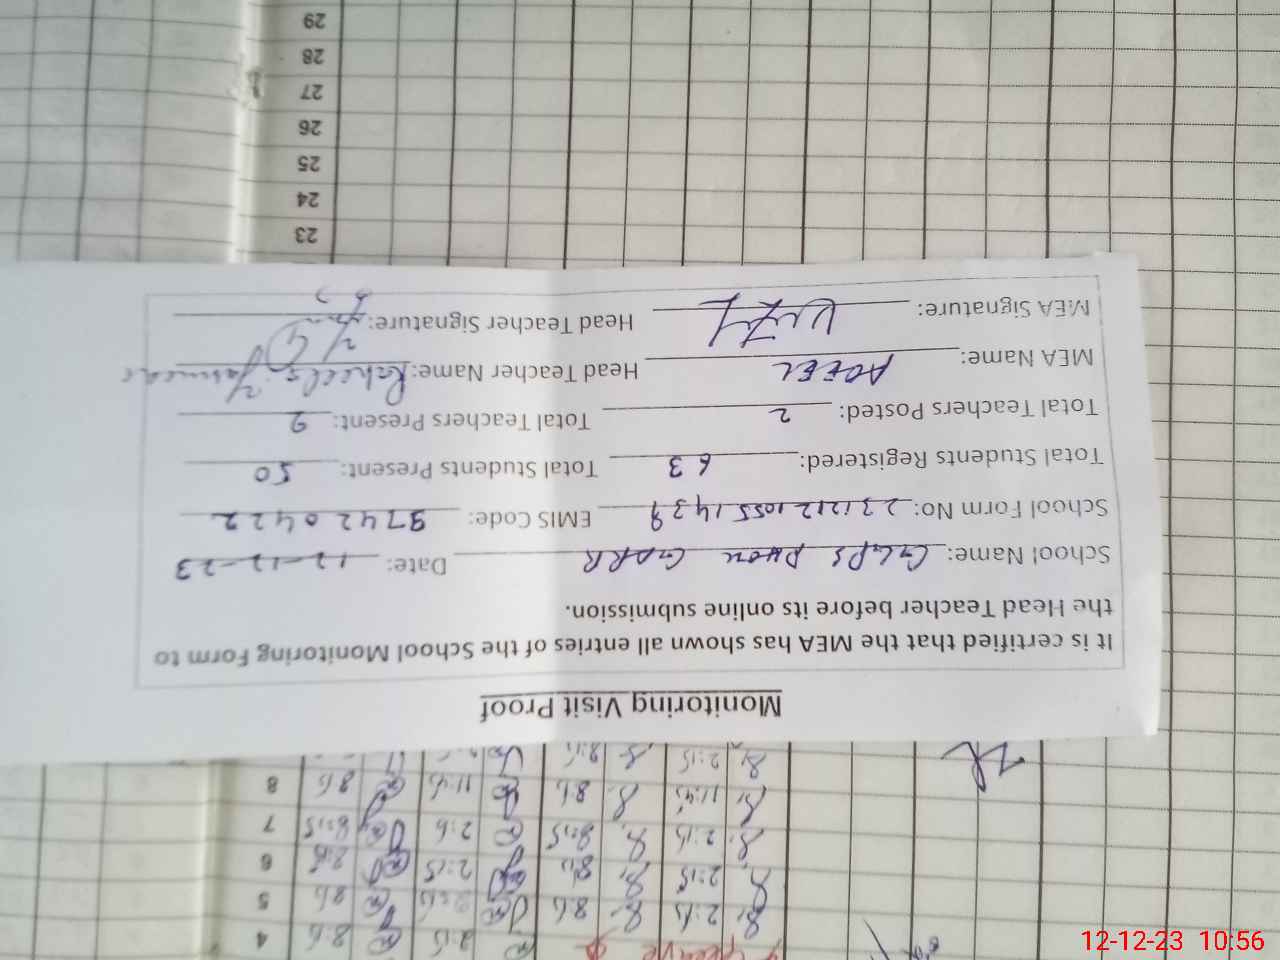 Monitoring Visit Proof
It is certified that the MEA has shown all entries of the School Monitoring Form to
the Head Teacher before its online submission.
School Name: GGPS DHOK GARR Date: 12-12-23
School Form No: 23121210551439 EMIS Code: 37420422
Total Students Registered: 63 Total Students Present: 50
Total Teachers Posted: 2 Total Teachers Present: 2
MEA Name: Head Teacher Name: Raheela Yasmeen
MEA Signature: Head Teacher Signature:
4 8:15 2:15
5 8:15 2:15 8:15 2:15
6 2:15 8:15 2:15
7 8:15 2:15 8:15 2:15
8 8:15 11:45 8:15 11:45
8:15 2:15
23
24
25
26
27
28
29
12-12-23 10:56